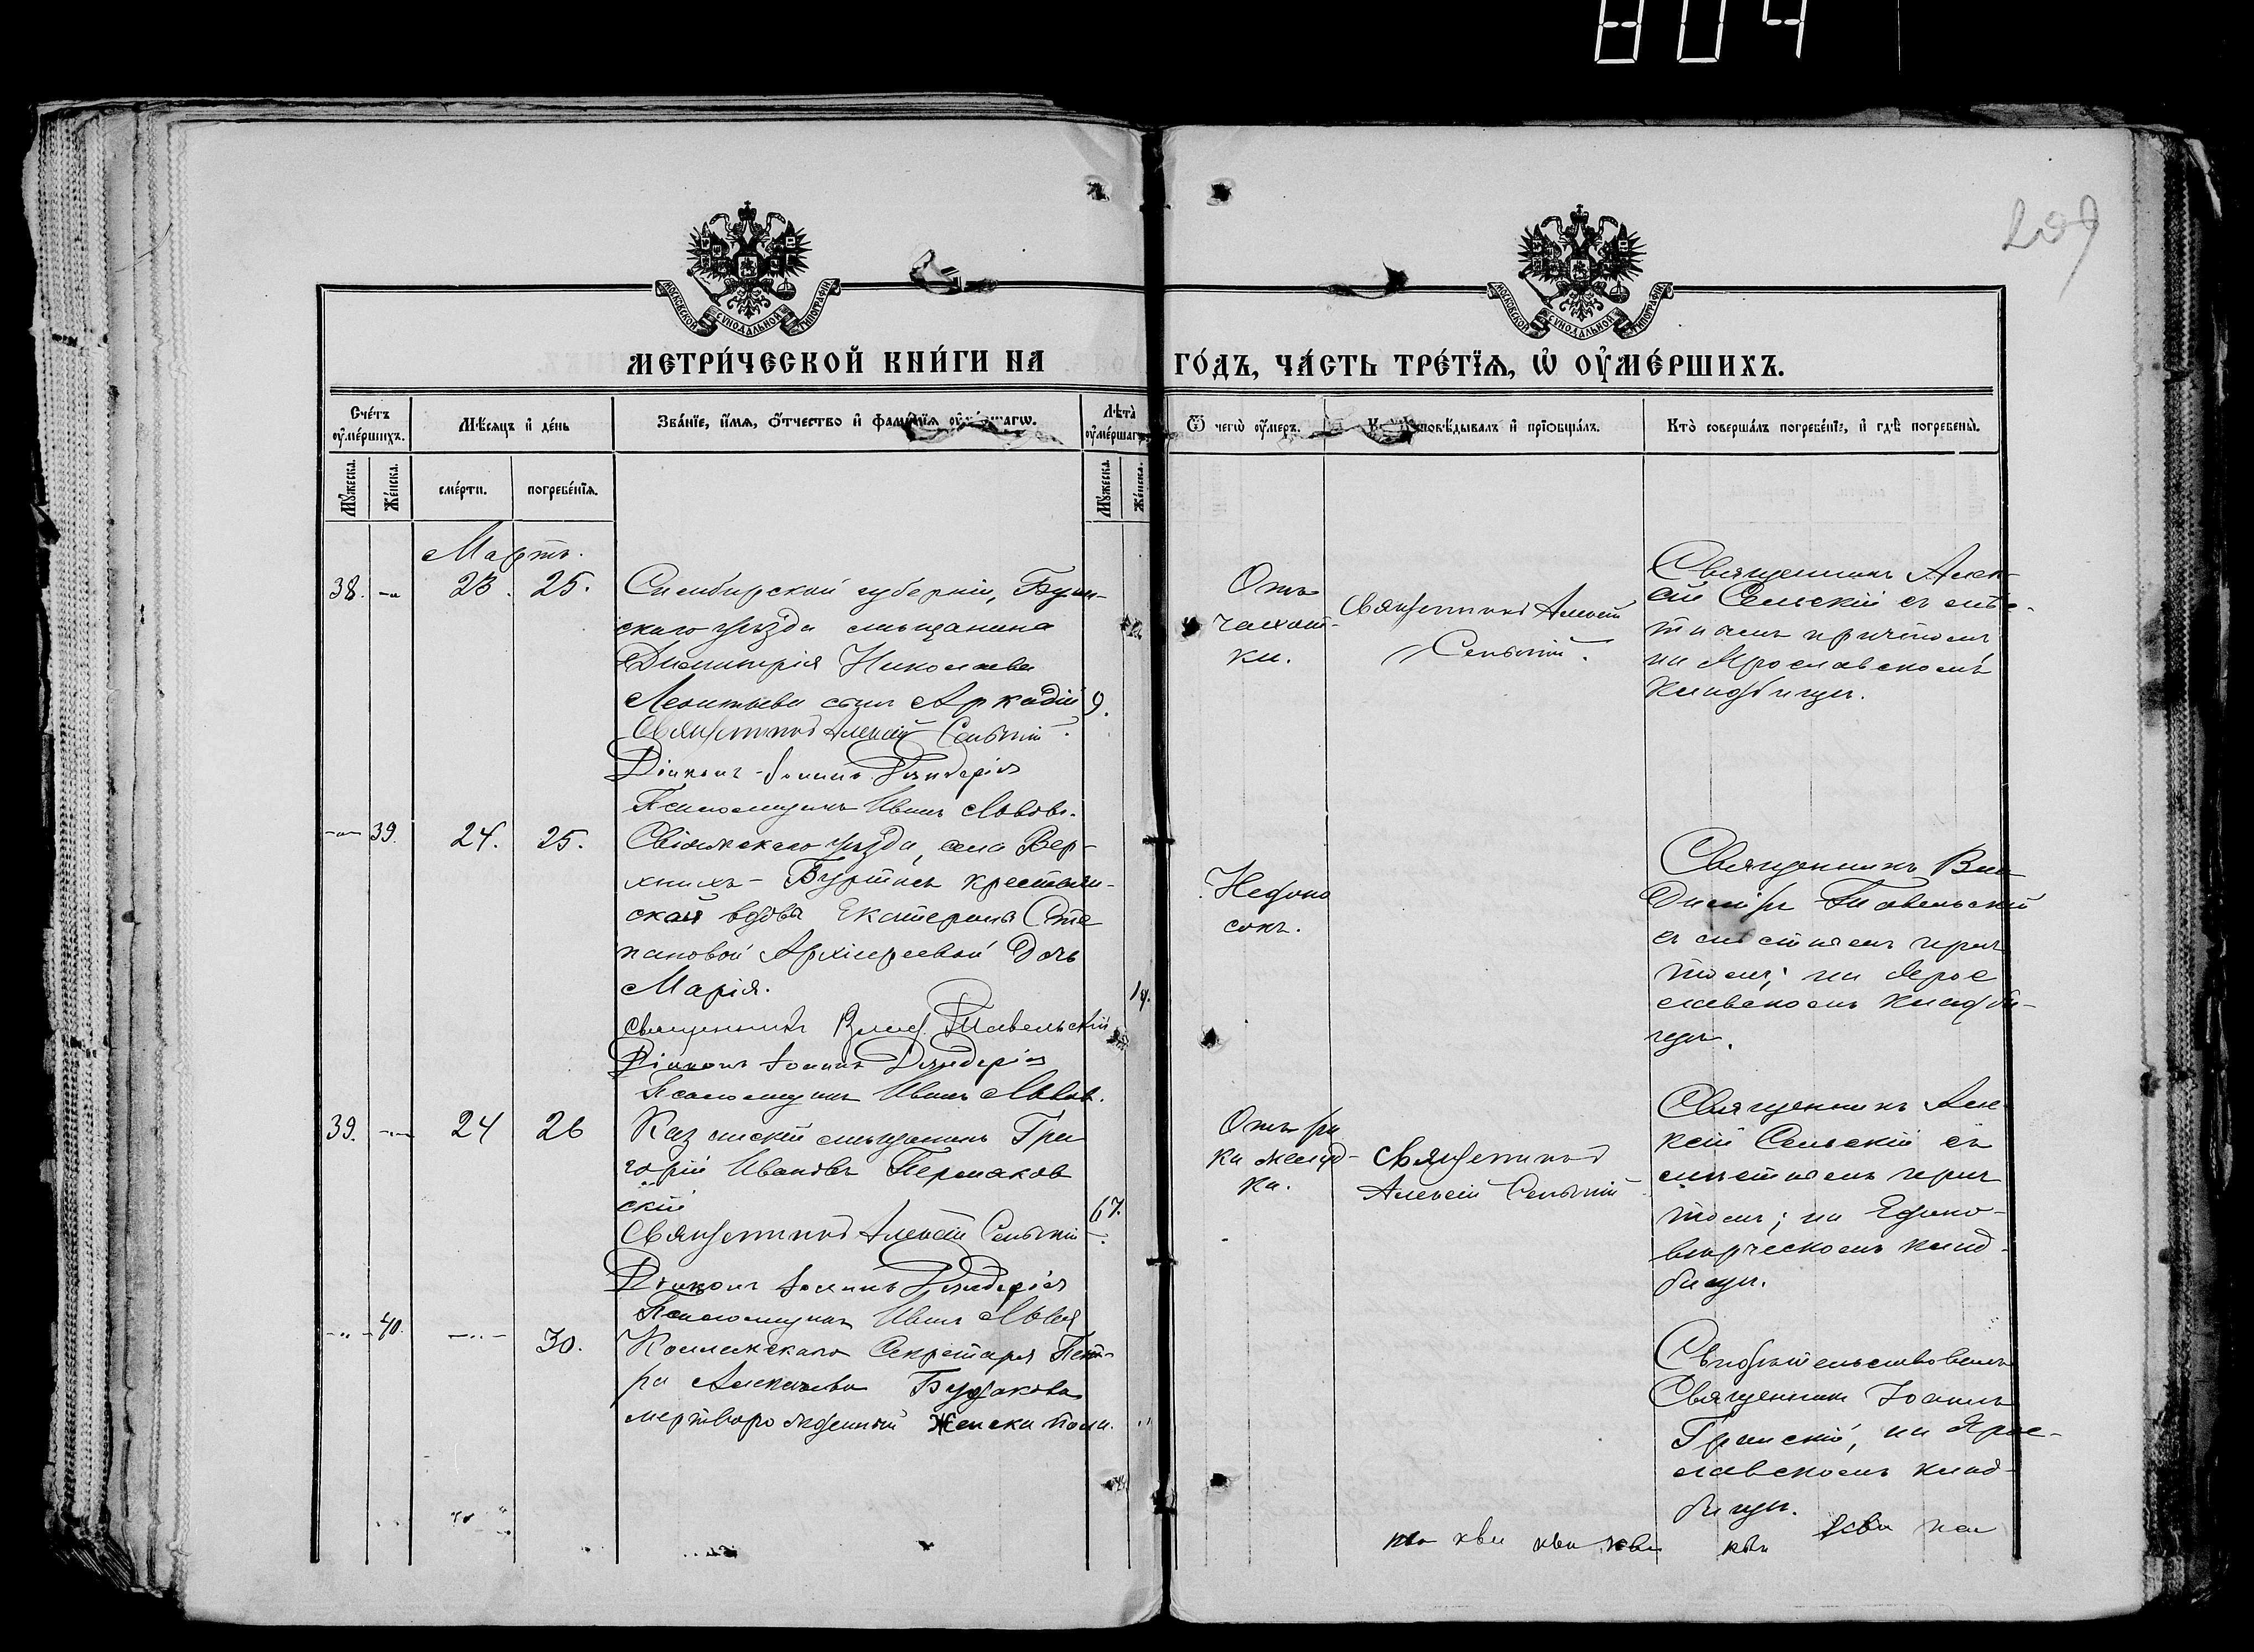 804
209
МОСКОВСКОЙ СѴНОДАЛЬНОЙ ТИПОГРАФІИ
МОСКОВСКОЙ СѴНОДАЛЬНОЙ ТИПОГРАФІИ
МЕТРИ́ЧЕСКОЙ КНИ́ГИ НА ГО́ДЪ, ЧА́СТЬ ТРЕ́ТЇѦ, Ѡ҆ ОУ҆МЕ́РШИХЪ.
Сче́тъ оу҆ме́ршихъ.
Мꙋ́жеска.
Же́нска.
Мѣ́сяцъ и҆ де́нь
сме́рти.
погребе́нїѧ.
Зва́нїе, и҆́мѧ, ѻ҆́тчество и҆ фамил́їѧ
Лѣ́та оу҆ме́ршагѡ
Мꙋ́жеска.
Же́нска.
Ѿ чегѡ̀ оу҆́меръ.
и҆сповѣ́дывалъ и҆ прїѡбща́лъ.
Кто̀ соверша́лъ погребе́нїе, и҆ гдѣ̀ погребены̀.
Мартъ.
38. -„- 23. 25.
Симбирской губерніи, Буин-
скаго уѣзда мѣщанина
Димитрія Николаева
Леонтьева сынъ Аркадій 9.
Священникъ Алексій Сельскій.
Діаконъ Іоаннъ
Псаломщикъ Иванъ Львовъ.
Отъ
чахот-
ки.
Священникъ Алексій
Сельскій.
Священникъ Алек-
сій Сельскій съ мѣс-
тнымъ причтомъ
на Ярославскомъ
кладбищѣ.
-„- 39. 24. 25.
Свіяжскаго уѣзда, села Вер-
хнихъ-Буртасъ крестьян-
ской вдовы Екатерины Сте
пановой Архіереевой дочь
Марія.
Священникъ Влад. Тавельскій
Діаконъ Іоаннъ
Псаломщикъ Иванъ Львовъ.
Недоно
сокъ.
Священникъ Вла
диміръ Тавельскій
съ мѣстнымъ прич
томъ; на Яро
славскомъ кладби-
щѣ.
39. -„- 24 26
Казанскій мѣщанинъ Гри
горій Ивановъ Пермяков
скій 67.
Священникъ Алексій Сельскій.
Діаконъ Іоаннъ
Псаломщикъ Иванъ Львовъ
Отъ ра
ка желуд-
ка.
Священникъ
Алексій Сельскій
Священникъ Але
ксій Сельскій съ
мѣстнымъ прич
томъ; на Едино-
вѣрческомъ клад-
бищѣ.
-„- 40. -„- 30.
Коллежскаго Секретаря Пет-
ра Алексѣева
мертворожденный женска пола. „
Свидѣтельствовалъ
Священникъ Іоаннъ
на Яро-
славскомъ клад-
бищѣ.